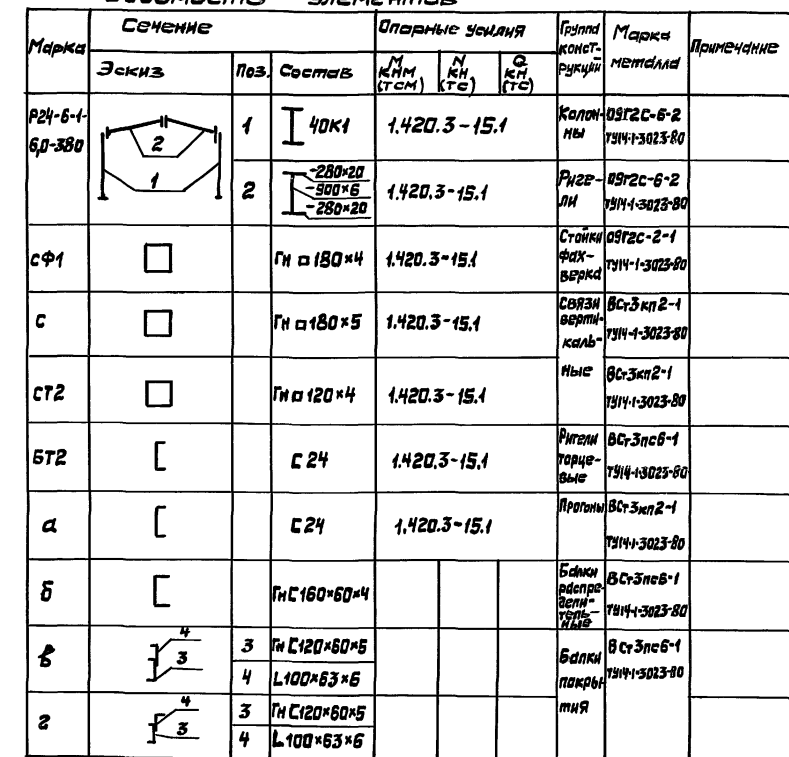 Ведомость элементов
Марка Сечение Опорные усилия Группа конст-рукций Марка металла Примечание
Эскиз Поз. Состав М кНм (тсм) N кН (тс) Q кН (тс)
Р24-6-1-6,0-380 2 1 1 I 40К1 1.420.3-15.1 Колон-ны 09Г2С-6-2 ТУ14-1-3023-80
2 -280×20 -900×6 -280×20 1.420.3-15.1 Ригели 09Г2С-6-2 ТУ14-1-3023-80
сф1 Гн □ 180×4 1.420.3-15.1 Стойки фах-верка 09Г2С-2-1 ТУ14-1-3023-80
с Гн □ 180×5 1.420.3-15.1 Связи верти-каль- ВСт3кп2-1 ТУ14-1-3023-80
ст2 Гн □ 120×4 1.420.3-15.1 ные ВСт3кп2-1 ТУ14-1-3023-80
БТ2 С 24 1.420.3-15.1 Ригели торце-вые ВСт3пс6-1 ТУ14-1-3023-80
а С 24 1.420.3-15.1 Прогоны ВСт3кп2-1 ТУ14-1-3023-80
б Гн С 160×60×4 Балки распре-дели-тель-ные ВСт3пс6-1 ТУ14-1-3023-80
в 4 3 3 Гн С120×60×5 Балки покры-тия ВСт3пс6-1 ТУ14-1-3023-80
4 L100×63×6
г 4 3 3 Гн С120×60×5
4 L100×63×6